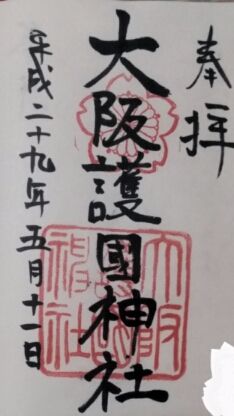 奉拝
大阪護國神社
平成二十九年五月十一日